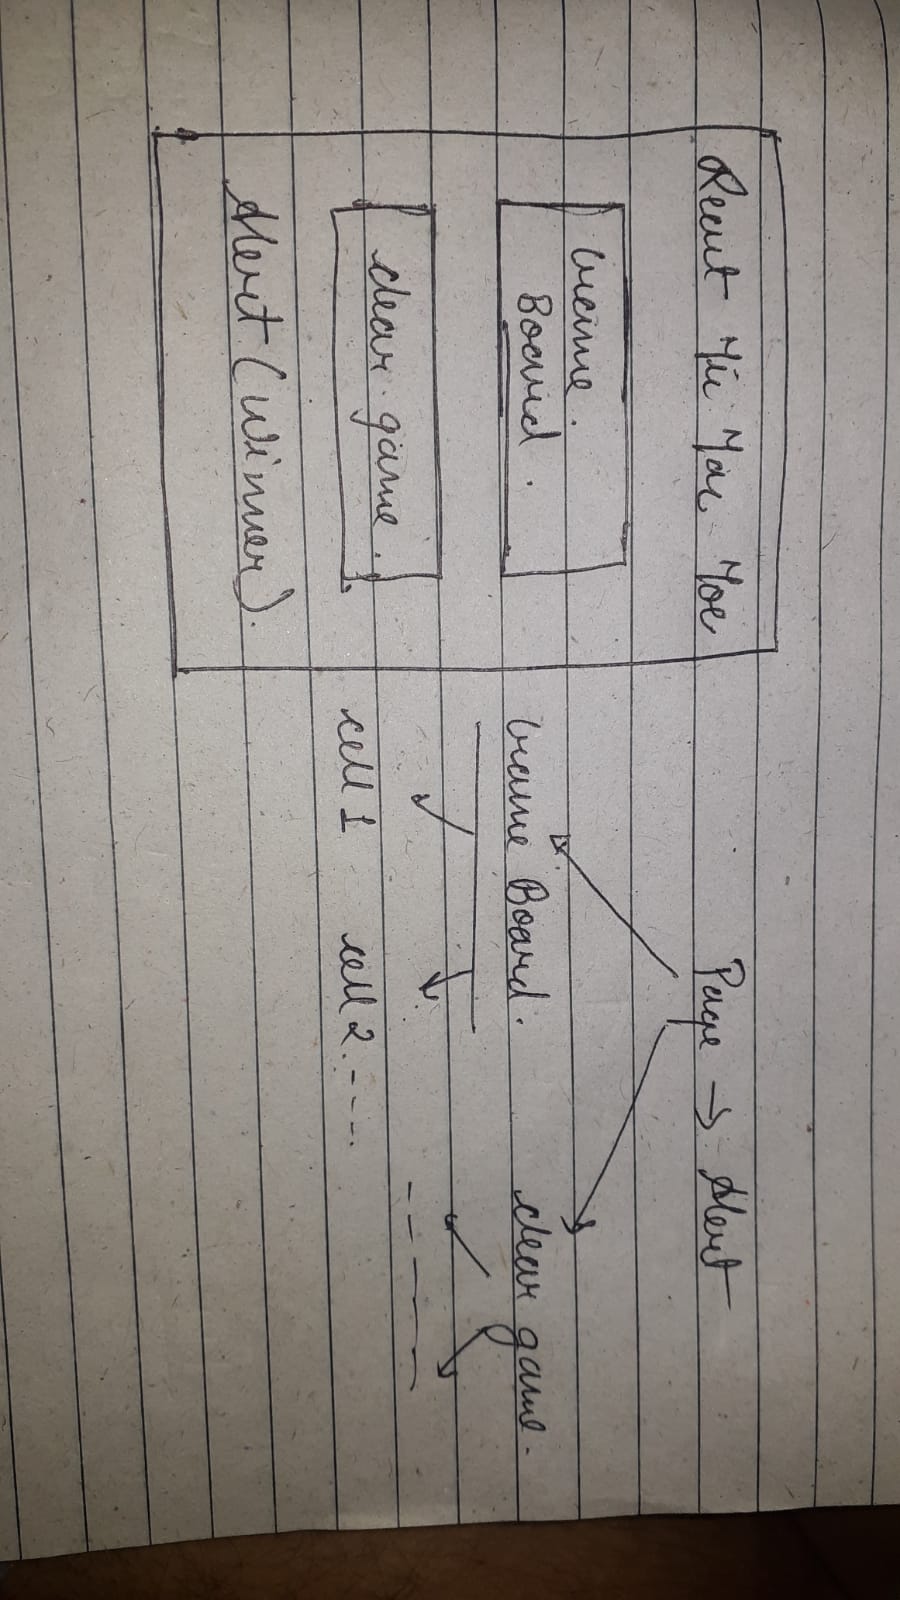 React Tic Tac Toe
Game
Board.
clear game.
Alert (Winner).
Page → Alert
Game Board.
clear game.
cell 1 cell 2. - - -.